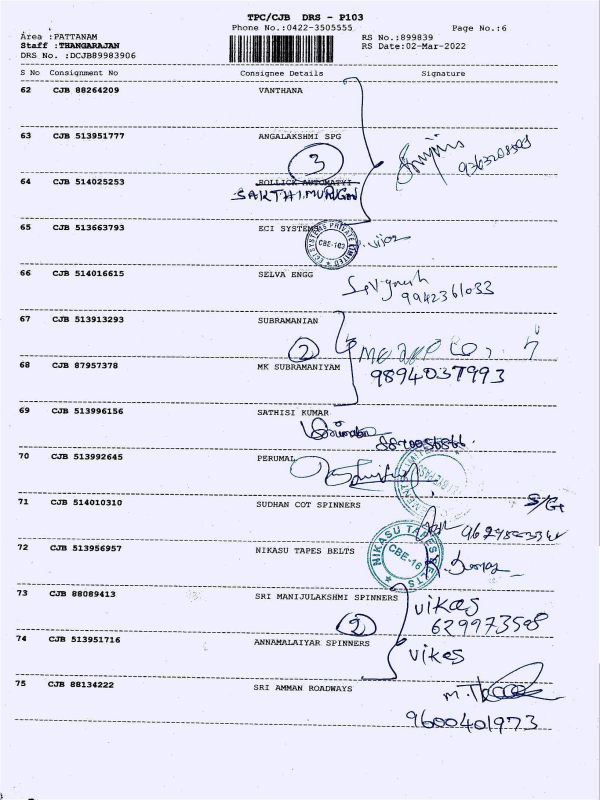 TPC/CJB DRS - P103
Phone No.:0422-3505555 Page No.:6
Area :PATTANAM RS No.:899839
Staff :THANGARAJAN RS Date:02-Mar-2022
DRS No. :DCJB89983906
S No Consignment No Consignee Details Signature
62 CJB 88264209 VANTHANA
63 CJB 513951777 ANGALAKSHMI SPG
3
64 CJB 514025253 ROLLICK AUTOMATYI
SAKTHI MURUGAN
65 CJB 513663793 ECI SYSTEMS
ECI SYSTEMS PRIVATE LIMITED
CBE-103
66 CJB 514016615 SELVA ENGG
9942361033
67 CJB 513913293 SUBRAMANIAN
2
68 CJB 87957378 MK SUBRAMANIYAM
9894037993
69 CJB 513996156 SATHISI KUMAR
70 CJB 513992645 PERUMAL
71 CJB 514010310 SUDHAN COT SPINNERS
72 CJB 513956957 NIKASU TAPES BELTS
NIKASU TAPES BELTS
CBE-16
73 CJB 88089413 SRI MANIJULAKSHMI SPINNERS
vikas
2
74 CJB 513951716 ANNAMALAIYAR SPINNERS
vikas
75 CJB 88134222 SRI AMMAN ROADWAYS
9600401973